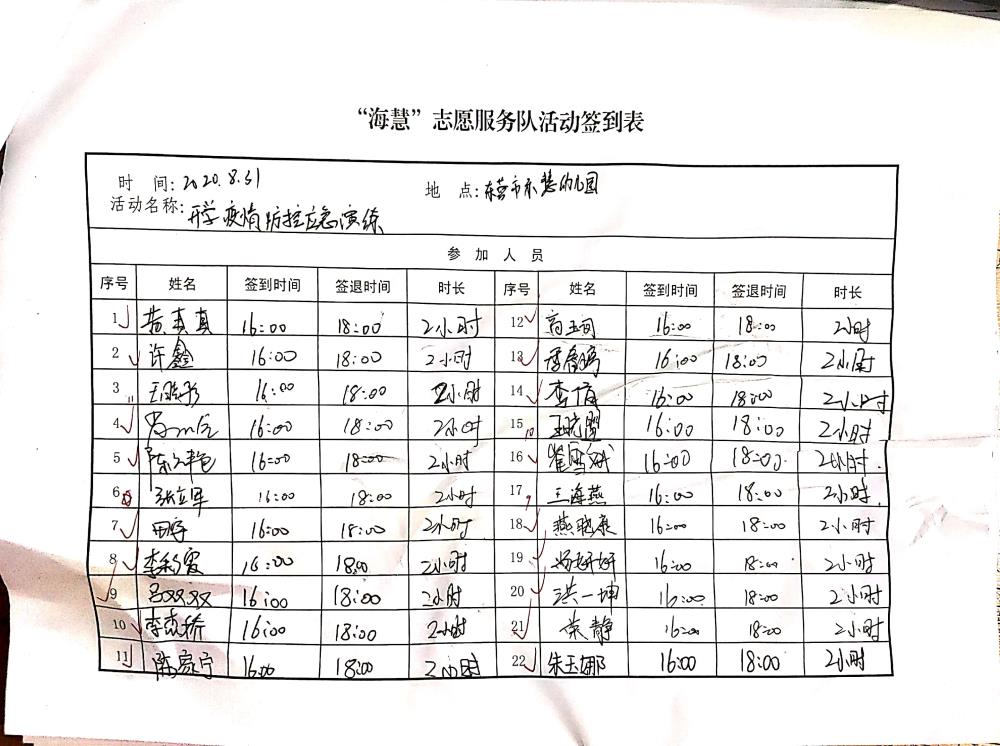 “海慧”志愿服务队活动签到表
时 间: 2020.8.31 地 点: 东营市东慧幼儿园
活动名称: 开学疫情防控应急演练
参 加 人 员
序号 姓名 签到时间 签退时间 时长 序号 姓名 签到时间 签退时间 时长
1 16:00 18:00 2小时 12 16:00 18:00 2小时
2 许鑫 16:00 18:00 2小时 13 16:00 18:00 2小时
3 16:00 18:00 2小时 14 李倩 16:00 18:00 2小时
4 16:00 18:00 2小时 15 16:00 18:00 2小时
5 16:00 18:00 2小时 16 16:00 18:00 2小时
6 张立军 16:00 18:00 2小时 17 王海燕 16:00 18:00 2小时
7 16:00 18:00 2小时 18 燕晓康 16:00 18:00 2小时
8 16:00 18:00 2小时 19 16:00 18:00 2小时
9 吕双双 16:00 18:00 2小时 20 洪一坤 16:00 18:00 2小时
10 16:00 18:00 2小时 21 荣静 16:00 18:00 2小时
11 陈家宁 16:00 18:00 2小时 22 朱玉娜 16:00 18:00 2小时